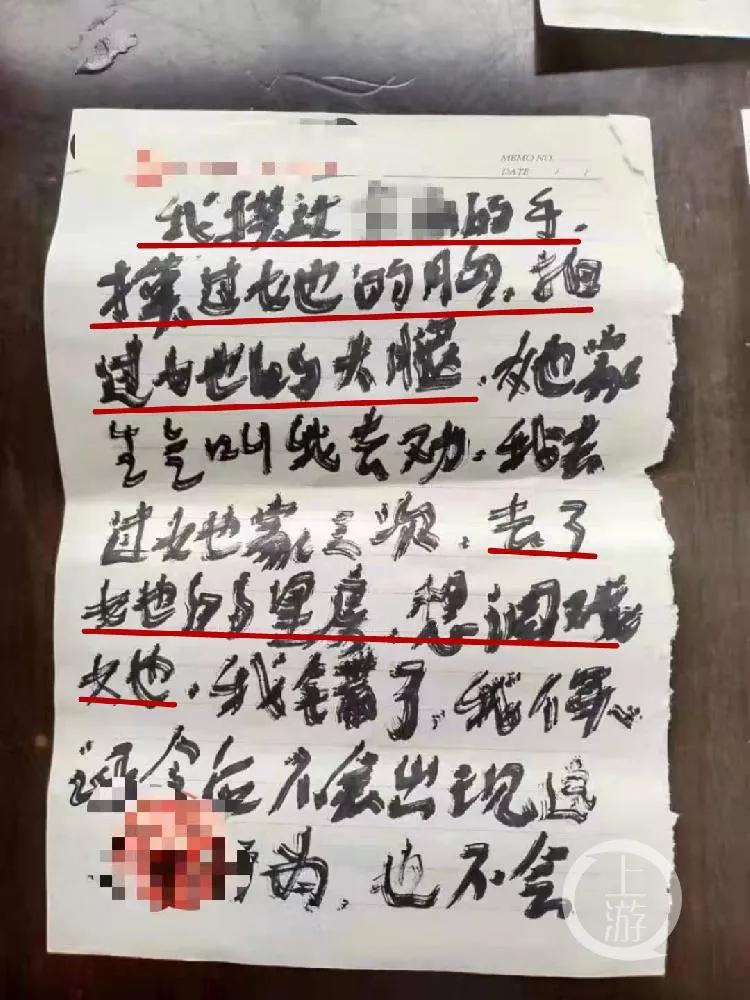 MEMO NO.
DATE / /
我摸过 的手,
摸过她的胸,拍
过她的大腿,她家
生气叫我去劝,我去
过她家三次,去了
她的里房,想调戏
她,我错了,我保
证今后不会出现这
为,也不会
上游